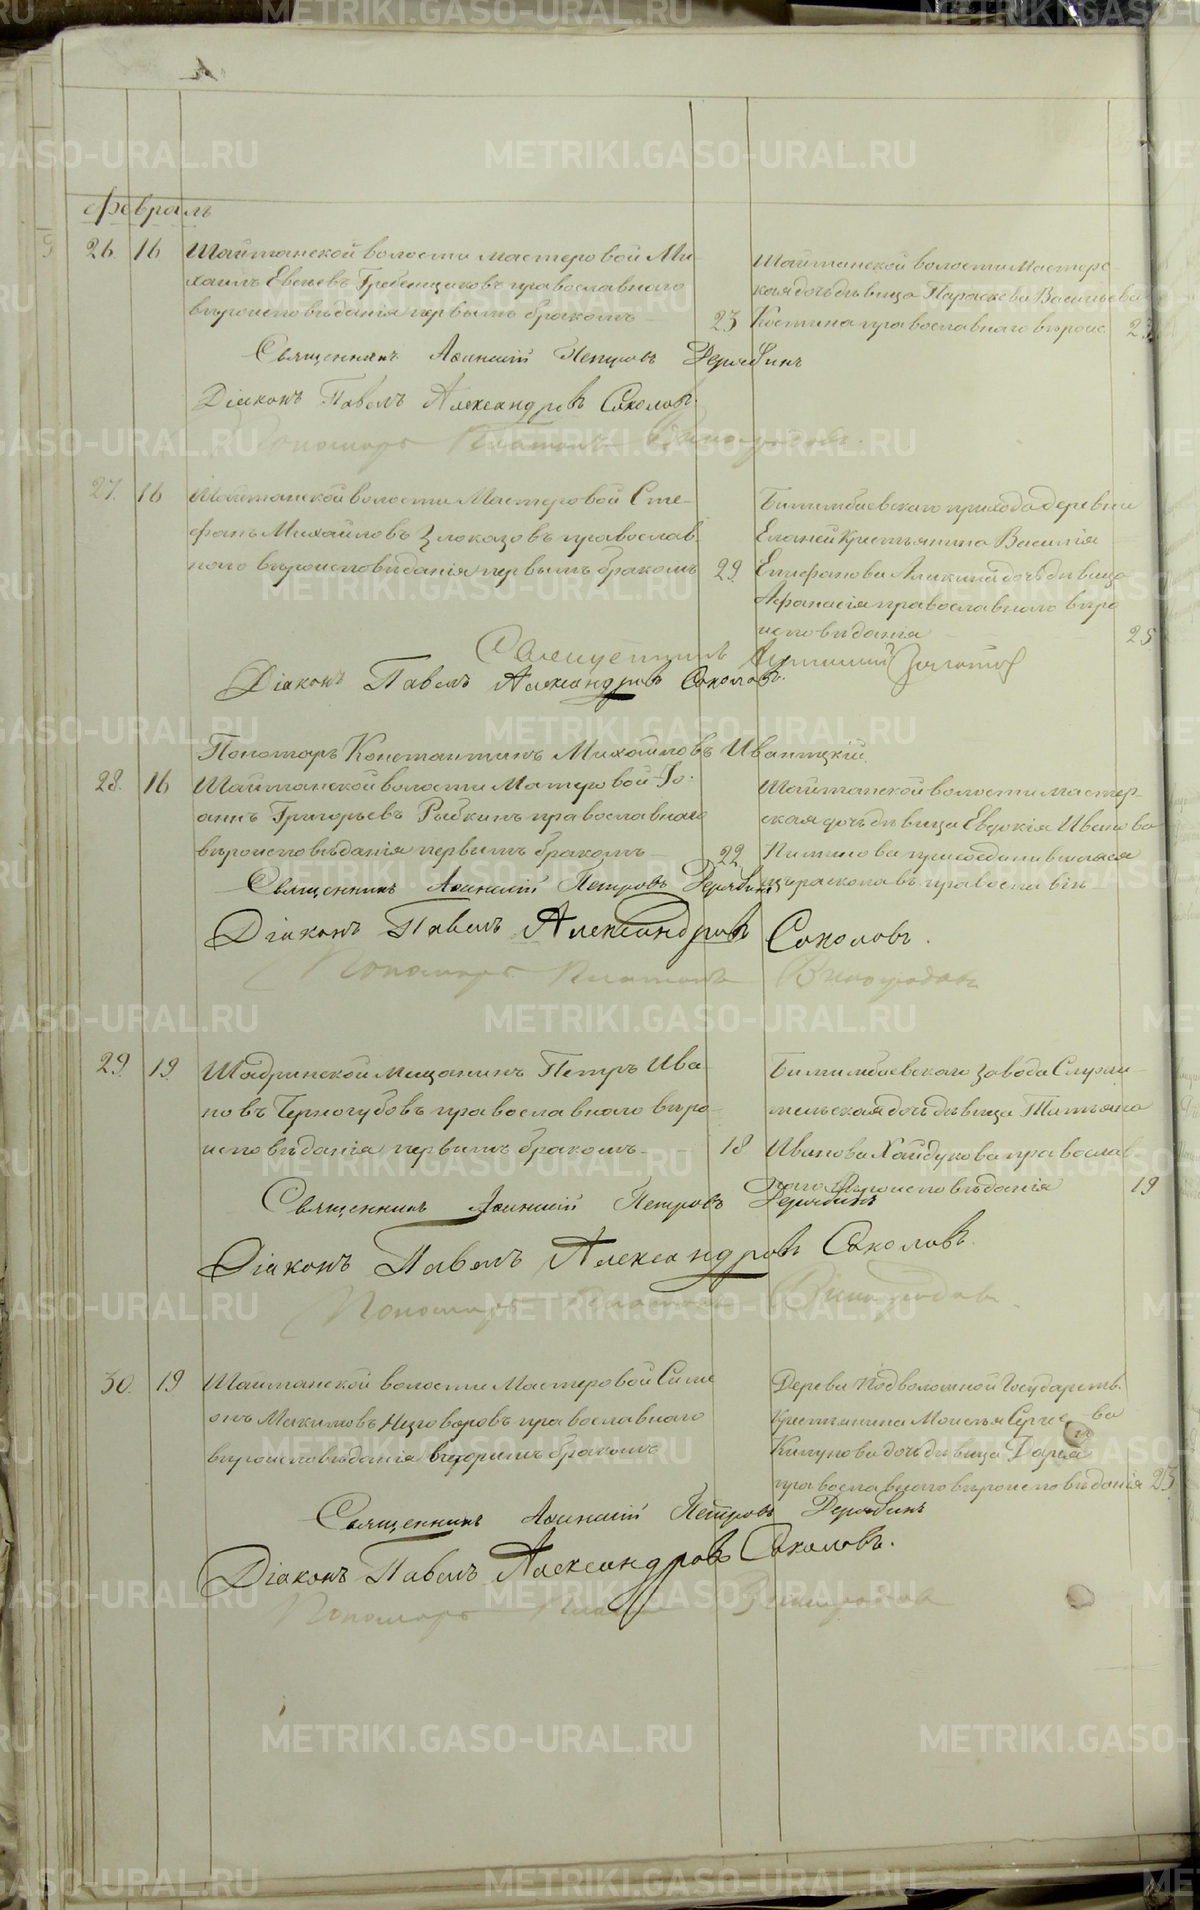 Февраль
26. 16 Шайтанской волости мастеровой Ми-
хаилъ Евсѣевъ Гребенщиковъ православнаго
вѣроисповѣданія первымъ бракомъ 23
Шайтанской волости Мастерс-
кая дочь дѣвица Параскева Васильева
Костина православнаго вѣроис 23
Священникъ Аѳанасій Петровъ Дерябинъ
Діаконъ Павелъ Александровъ Соколовъ.
Пономарь Платонъ Виноградовъ.
27. 16 Шайтанской волости Мастеровой Сте-
фанъ Михайловъ Злоказовъ православ-
наго вѣроисповѣданія первымъ бракомъ 29
Билимбаевскаго прихода деревни
Еланей Крестьянина Василія
Епифанова Аликина дочь дѣвица
Афанасія православнаго вѣро
исповѣданія 25
Священникъ
Діаконъ Павелъ Александровъ Соколовъ.
Пономарь Константинъ Михайловъ Иваницкій.
28. 16 Шайтанской волости Матеровой Іо-
аннъ Григорьевъ Рыбкинъ православнаго
вѣроисповѣданія первымъ бракомъ 22
Шайтанской волости мастер-
ская дочь дѣвица Евдокія Иванова
Пимянова присоединившаяся
изъ раскола въ православіи
Священникъ Аѳанасій Петровъ Дерябинъ
Діаконъ Павелъ Александровъ Соколовъ.
Пономарь Платонъ Виноградовъ
29. 19 Шадринской мещанинъ Петръ Ива-
новъ Черногубовъ православнаго вѣро-
исповѣданія первымъ бракомъ 18
Билимбаевскаго завода Служи-
тельская дочь дѣвица Татьяна
Иванова Хайдукова православ
наго вѣроисповѣданія 19
Священникъ Аѳанасій Петровъ Дерябинъ
Діаконъ Павелъ Александровъ Соколовъ.
Пономарь Платонъ Виноградовъ.
30. 19 Шайтанской волости Мастеровой Симе
онъ Макимовъ Незговоровъ православнаго
вѣроисповѣданія вторымъ бракомъ
Деревни Подволошной Государств.
Крестьянина Моисѣя Сергѣева
Кипунова дочь дѣвица Дарья
православнаго вѣроисповѣданія 25
Священникъ Аѳанасій Петровъ Дерябинъ
Діаконъ Павелъ Александровъ Соколовъ.
Пономарь Платонъ Виноградовъ
METRIKI.GASO-URAL.RU